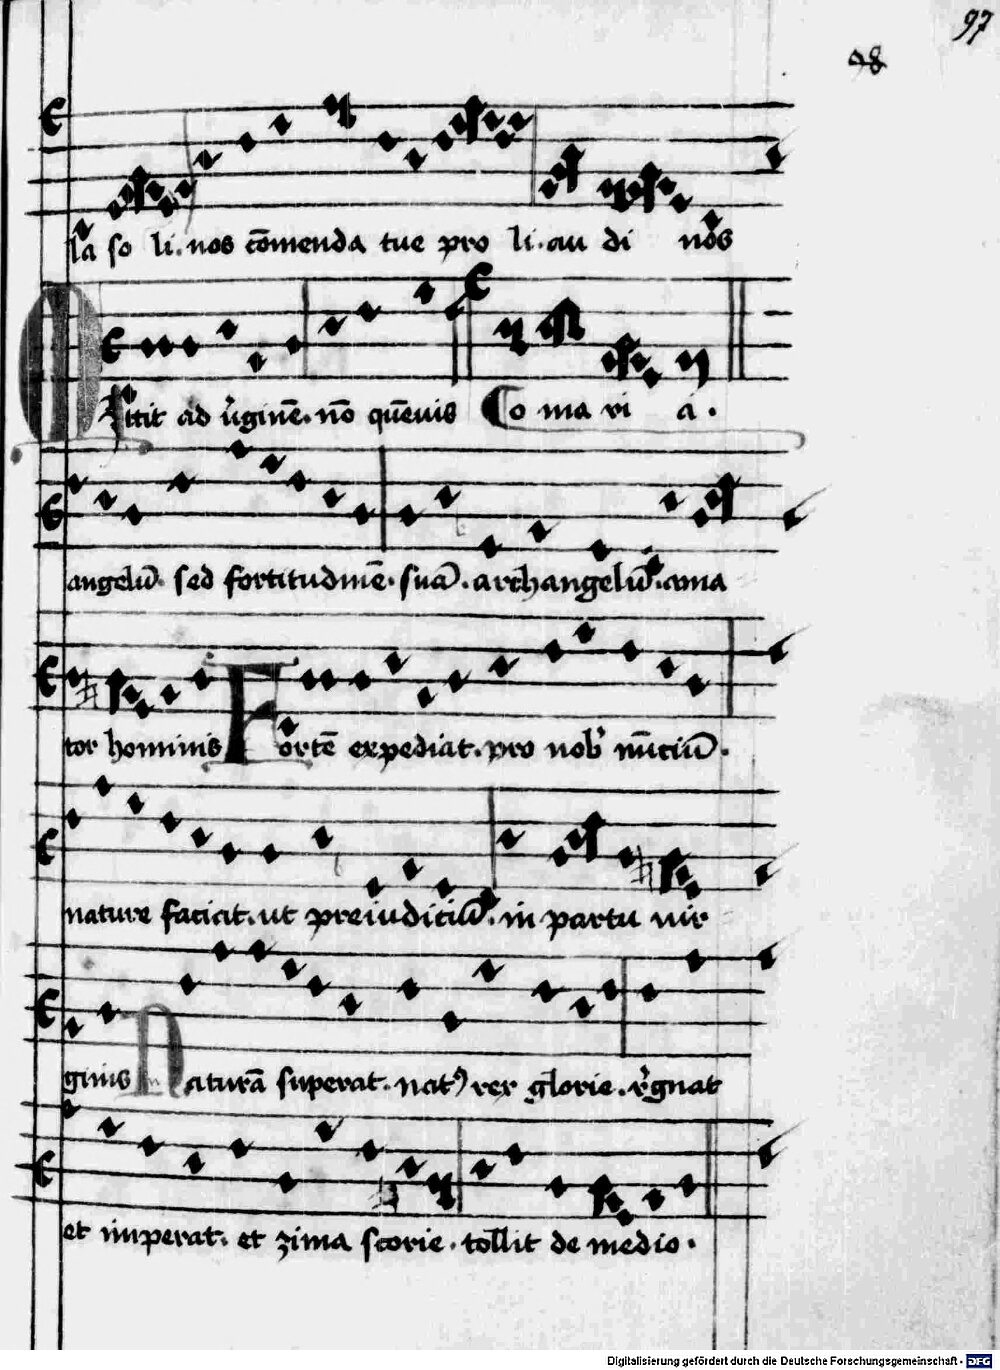 97
98
la so li. nos c̄omenda tue pro li. au di nos
Mittit ad v̓ginē. nō quēuis O ma ri a.
angelū. sed fortitudinē. suā. archangelū. ama
tor hominis Fortē expediat. pro nob̓ nūciū.
nature faciat. ut preiudiciū. in partu vir
ginis Naturā superat. natꝰ rex glorie. r̓gnat
et imperat. et zima scorie. tollit de medio.
Digitalisierung gefördert durch die Deutsche Forschungsgemeinschaft - DFG